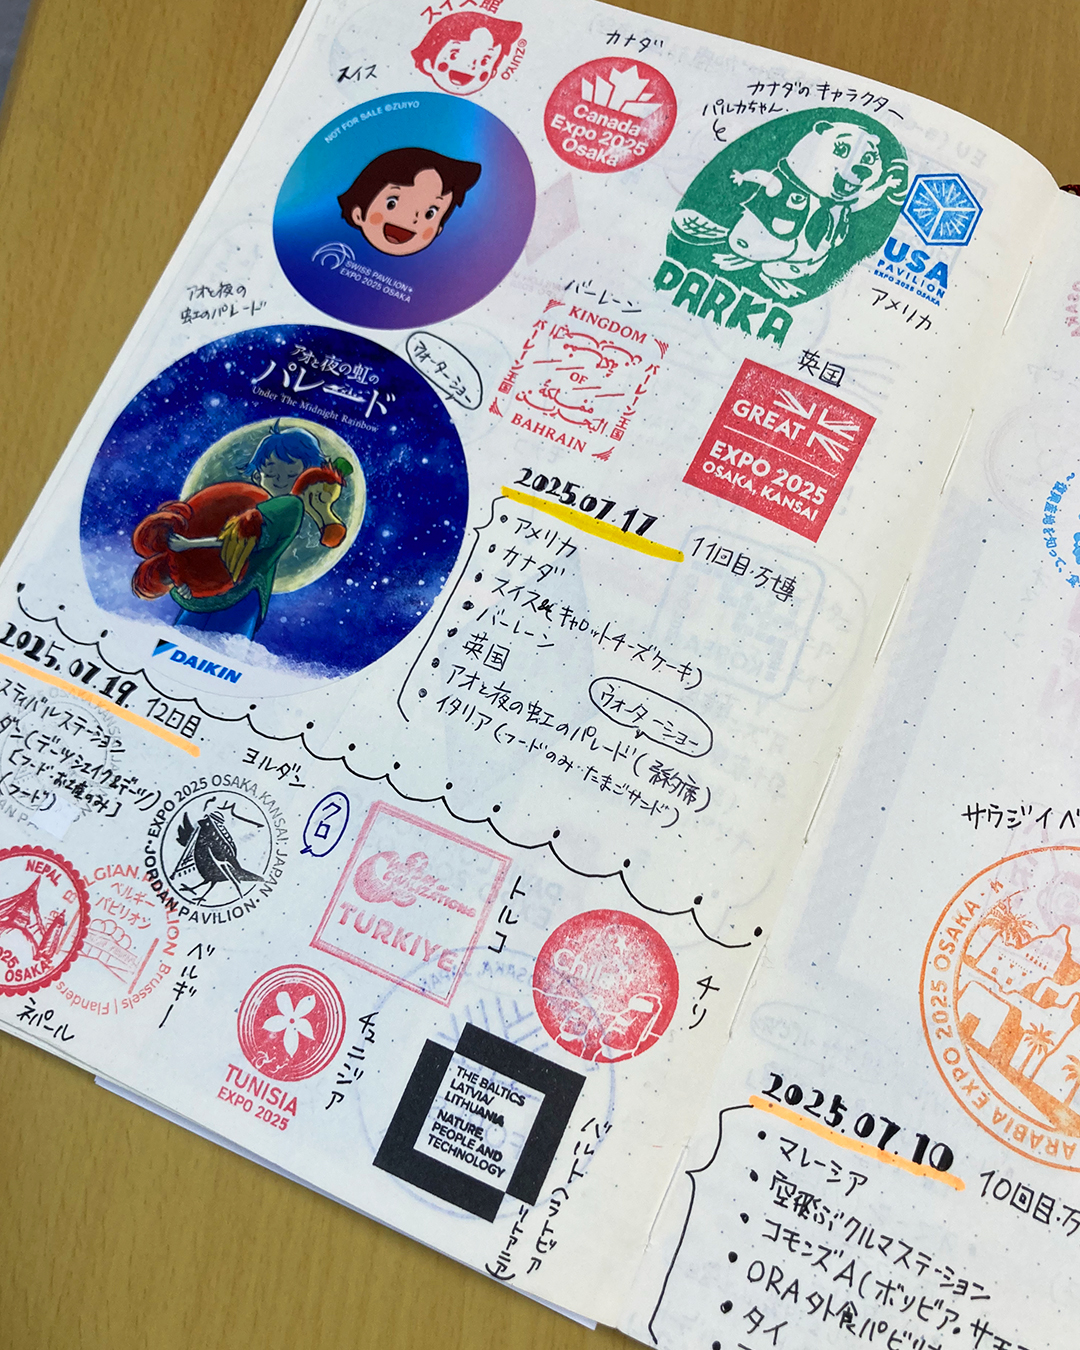 スイス館
©ZUIYO
スイス
NOT FOR SALE ©ZUIYO
SWISS PAVILION+
EXPO 2025 OSAKA
カナダ
Canada
Expo 2025
Osaka
カナダのキャラクター
パルカちゃん
と
PARKA
USA
PAVILION
EXPO 2025 OSAKA
アメリカ
アオと夜の
虹のパレード
ウォーターショー
アオと夜の虹の
パレード
Under The Midnight Rainbow
DAIKIN
バーレーン
KINGDOM
バーレーン王国
OF
バーレーン王国
مملكة
البحرين
BAHRAIN
英国
GREAT
EXPO 2025
OSAKA, KANSAI
2025.07.17
11回目・万博
・アメリカ
・カナダ
・スイス(キャロットチーズケーキ)
・バーレーン
・英国
・アオと夜の虹のパレード(予約席)
ウォーターショー
・イタリア(フードのみ・たまごサンド)
2025.07.19. 12回目
スティバルステーション
ダン(デーツシェイク&デーツ)
(フード・お土産のみ)
(フード)
ヨルダン
EXPO 2025 OSAKA, KANSAI, JAPAN
JORDAN PAVILION
クロ
TURKIYE
トルコ
NEPAL
OSAKA
ネパール
BELGIAN PAVILION
ベルギー
パビリオン
Brussels | Flanders
ベルギー
TUNISIA
EXPO 2025
チュニジア
Chile
チリ
THE BALTICS
LATVIA/
LITHUANIA
NATURE,
PEOPLE AND
TECHNOLOGY
バルト(ラトビア
リトアニア)
サウジイ
ARABIA EXPO 2025 OSAKA
2025.07.10
10回目・万
・マレーシア
・空飛ぶクルマステーション
・コモンズA(ボリビア・サモ
・ORA外食パビリ
・タイ